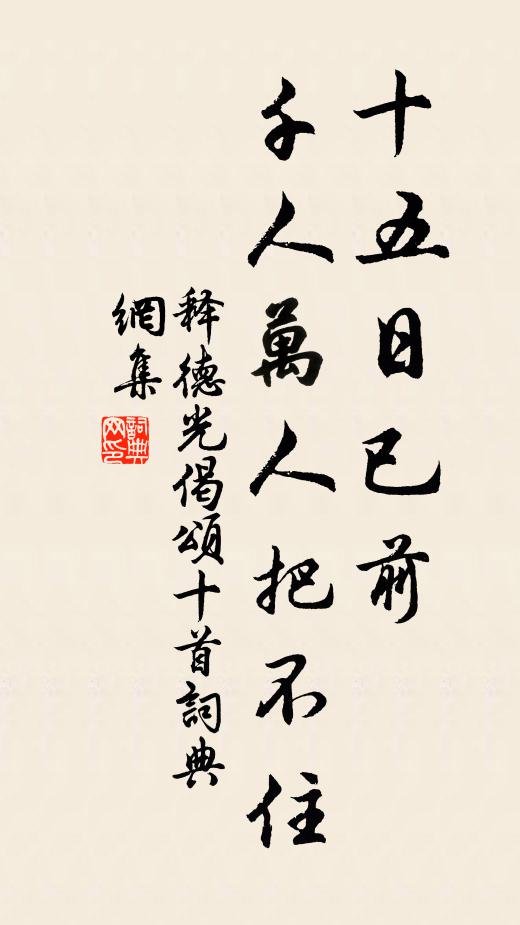 十五日已前
千人萬人把不住
释德光偈頌十首詞典
網集
詞典
网印